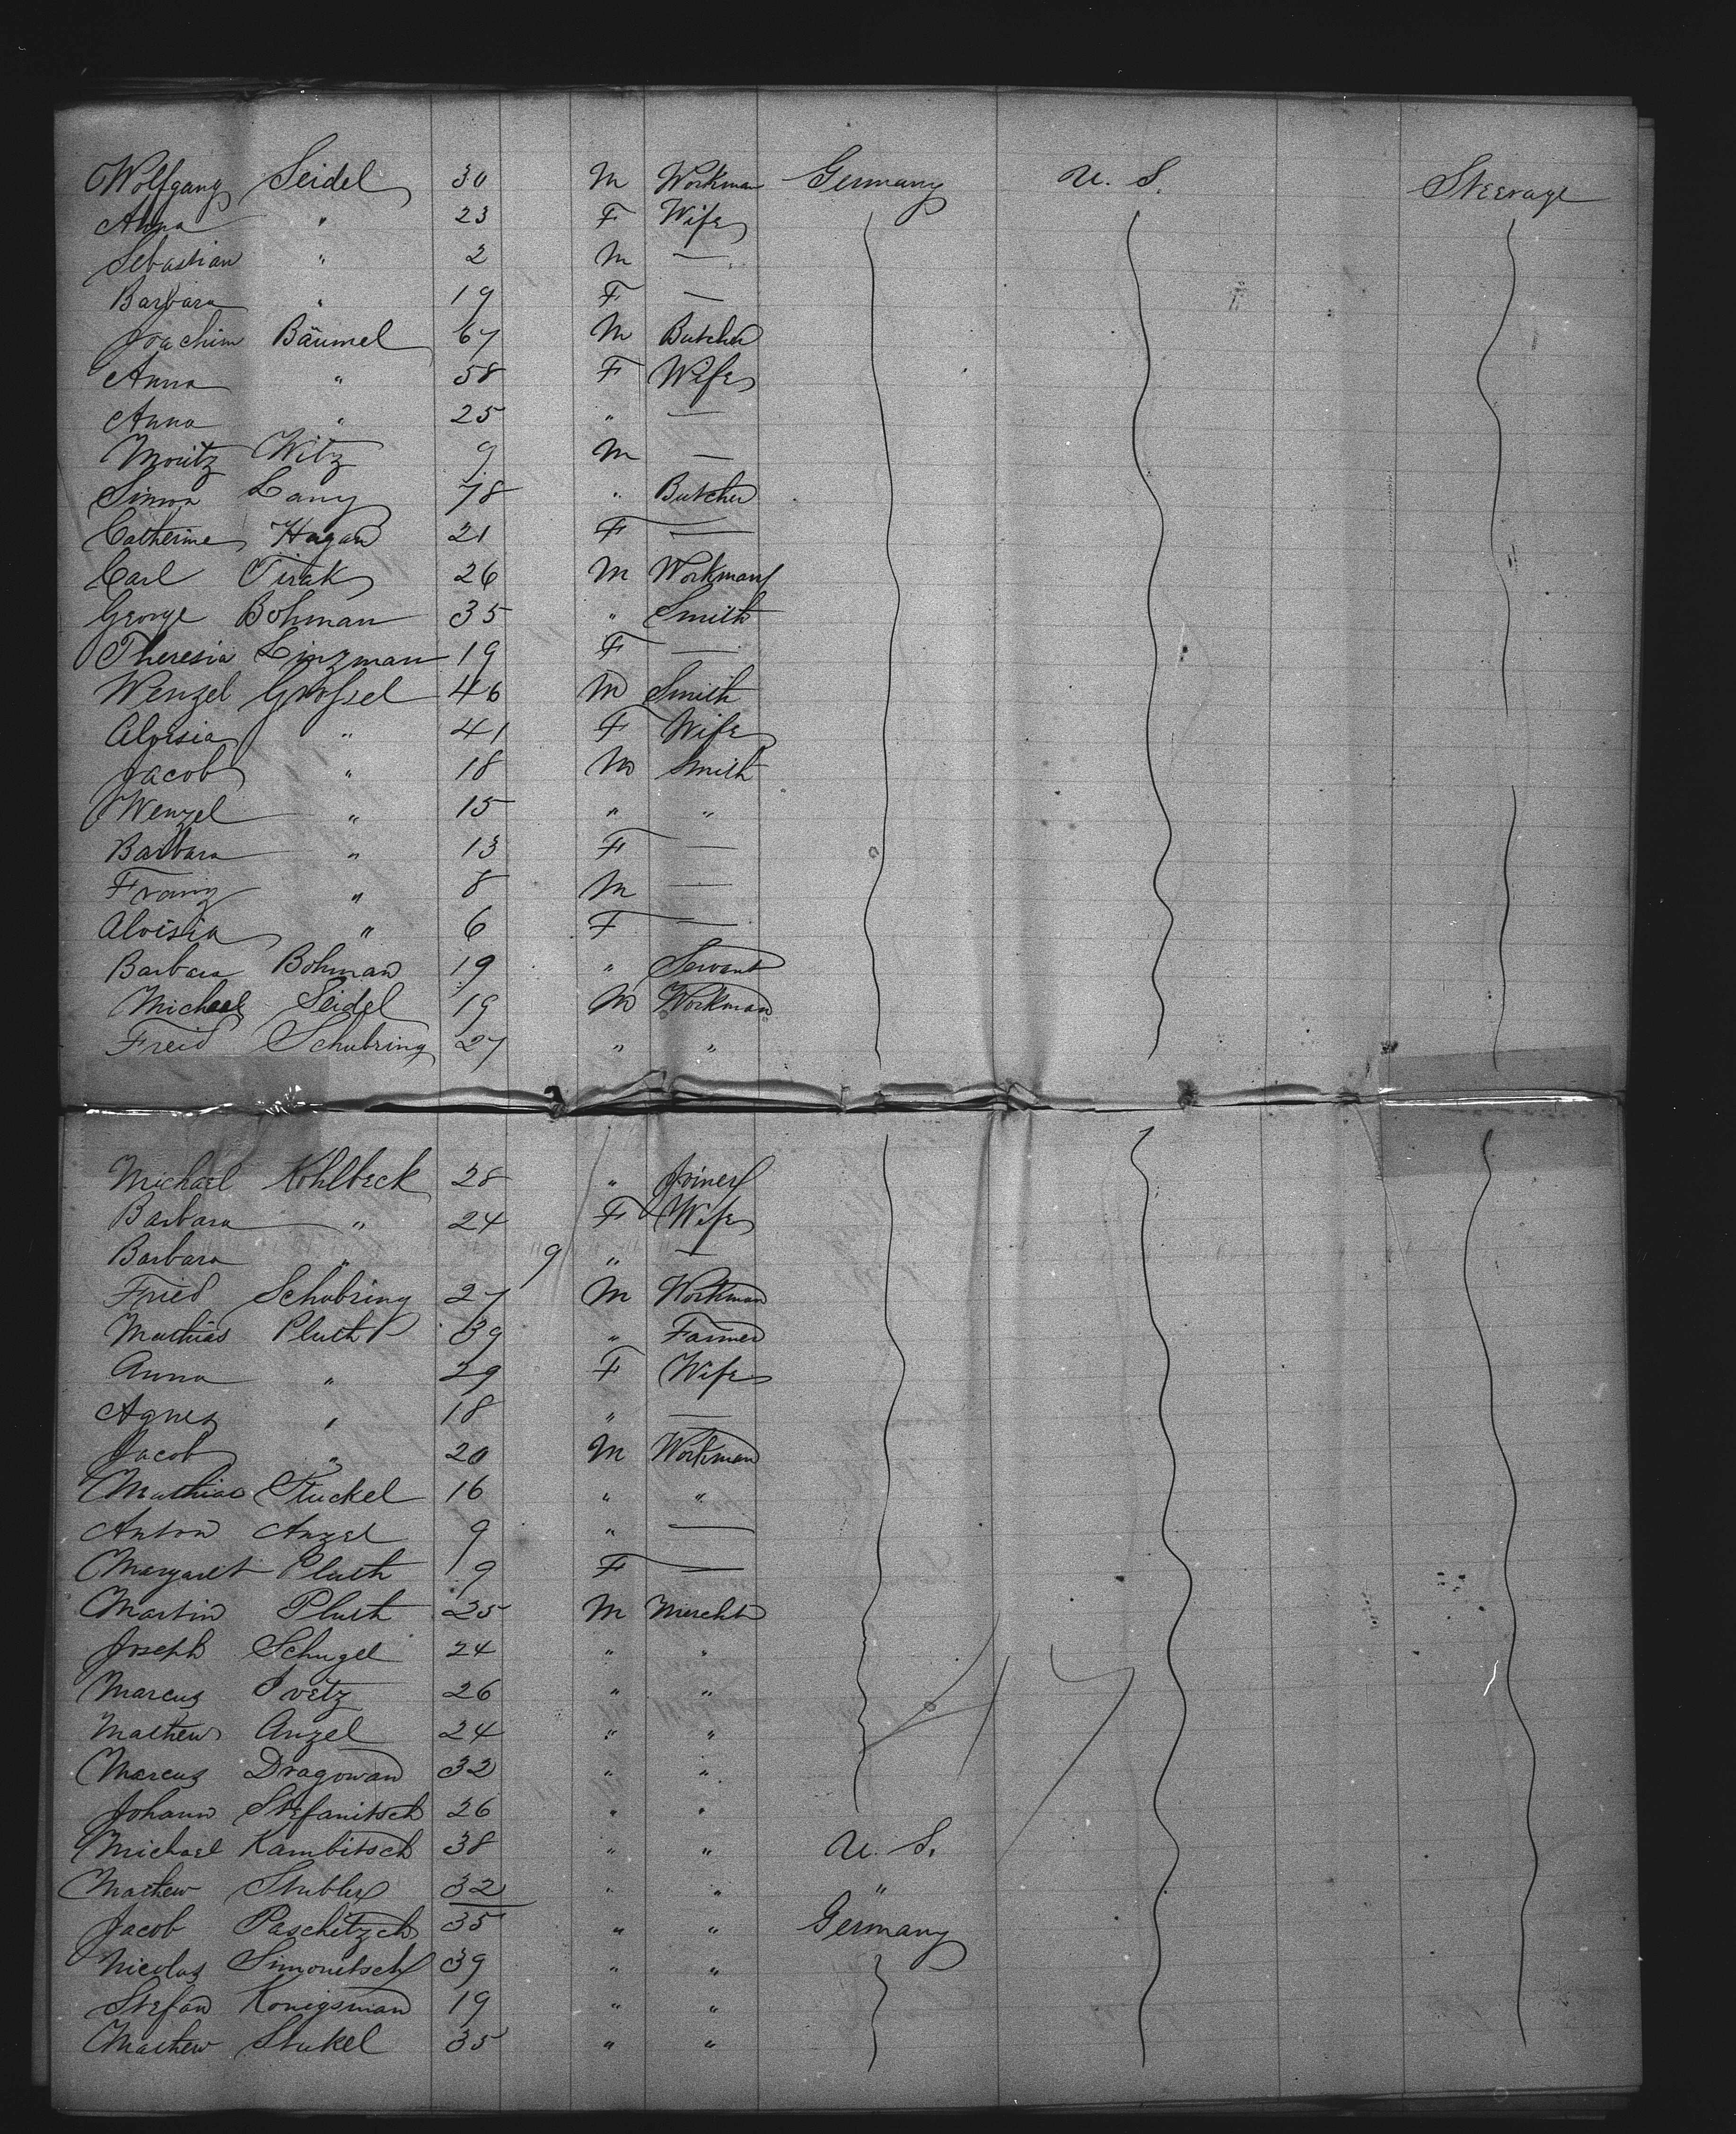 Wolfgang Seidel 30 M Workman Germany U. S. Steerage
Anna " 23 F Wife
Sebastian " 2 M —
Barbara " 19 F —
Joachim Bäumel 67 M Butcher
Anna " 58 F Wife
Anna " 25 " —
Moritz Witz 9 M —
Simon Lany 78 " Butcher
Catherine Hagan 21 F —
Carl Tirak 26 M Workman
George Bohman 35 " Smith
Theresia Linzman 19 F —
Wenzel Großel 46 M Smith
Aloisia " 41 F Wife
Jacob " 18 M Smith
Wenzel " 15 " "
Barbara " 13 F —
Franz " 8 M —
Aloisia " 6 F —
Barbara Bohman 19 " Servant
Michael Seidel 19 M Workman
Freid Schubring 27 " "
Michael Kohlbeck 28 " Joiner
Barbara " 24 F Wife
Barbara " 9 " —
Fried Schubring 27 M Workman
Mathias Pluth 39 " Farmer
Anna " 29 F Wife
Agnes " 18 " —
Jacob " 20 M Workman
Mathias Stuckel 16 " "
Anton Anzel 9 " —
Margaret Pluth 19 F —
Martin Pluth 25 M Mercht
Joseph Schugel 24 " "
Marcus Ivetz 26 " "
Mathew Anzel 24 " "
Marcus Dragowan 32 " "
Johann Stefanitsch 26 " "
Michael Kambitsch 38 " " U. S.
Mathew Stubler 32 " " "
Jacob Paschitzch 35 " " Germany
Nicolas Simonitsch 39 " "
Stefan Konigsman 19 " "
Mathew Stukel 35 " "